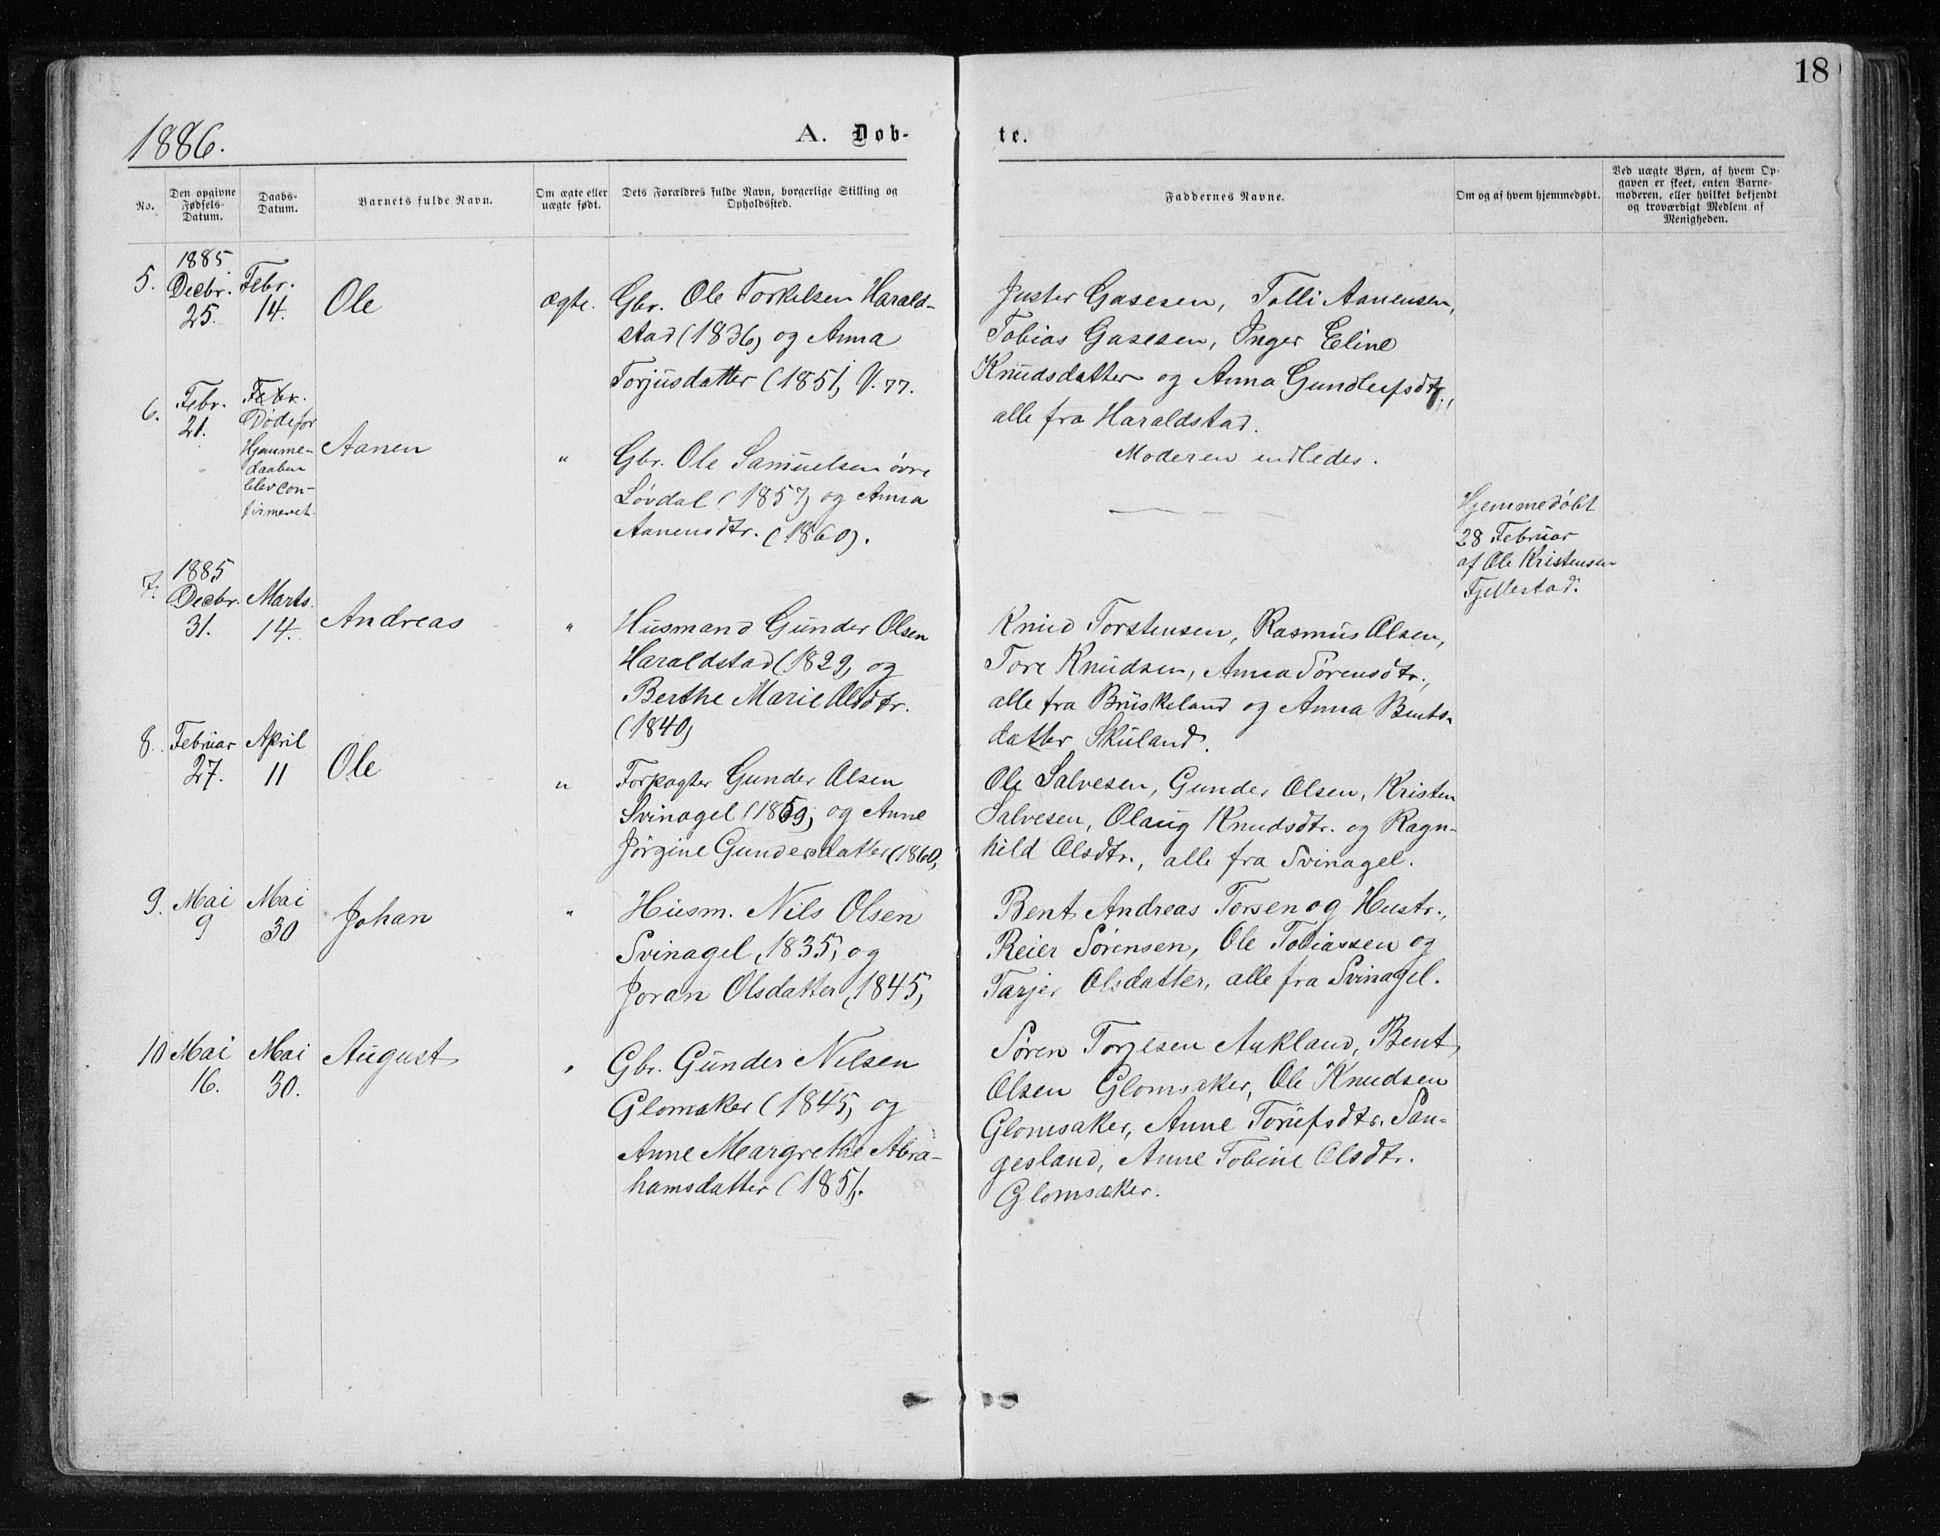 18
1886.
A. Døb-
te.
No.
Den opgivne Fødsels-Datum.
Daabs-Datum.
Barnets fulde Navn.
Om ægte eller uægte født.
Dets Forældres fulde Navn, borgerlige Stilling og Opholdssted.
Faddernes Navne.
Om og af hvem hjemmedøbt.
Ved uægte Børn, af hvem Op-
gaven er skeet, enten Barne-
moderen, eller hvilket bekjendt
og troværdigt Medlem af
Menigheden.
5.
1885.
Decbr.
25.
Febr.
14.
Ole
ægte.
Gbr. Ole Torkelsen Harald-
stad (1836) og Anna
Torjusdatter (1851) V. 77.
Juster Gasesen, Tolli Aanensen,
Tobias Gasesen, Inger Eline
Knudsdatter og Anna Gundleifsdtr.,
alle fra Haraldstad.
Moderen indledes.
6.
Febr.
21.
Febr.
Døde før
Hjemme-
daaben
blev con-
firmeret.
Aanen
"
Gbr. Ole Samuelsen øvre
Løvdal (1857) og Anna
Aanensdtr. (1860).
Hjemmedøbt
28 Februar
af Ole Kristensen
Fjellestad.
7.
1885
Decbr.
31.
Marts.
14.
Andreas
"
Husmand Gunder Olsen
Haraldstad (1829) og
Berthe Marie Olsdtr.
(1840)
Knud Torstensen, Rasmus Olsen,
Tore Knudsen, Anna Sørensdtr.,
alle fra Bruskeland og Anna Bents-
datter Skuland.
8.
Februar
27.
April
11
Ole
"
Forpagter Gunder Olsen
Svinagel (1859) og Anne
Jørgine Gundersdatter (1860)
Ole Salvesen, Gunder Olsen, Kristen
Salvesen, Olaug Knudsdtr. og Ragn-
hild Olsdtr., alle fra Svinagel.
9.
Mai
9
Mai
30
Johan
"
Husm. Nils Olsen
Svinagel (1835) og
Joran Olsdatter (1845)
Bent Andreas Torsen og Hustr.,
Reier Sørensen, Ole Tobiassen og
Tarjer Olsdatter, alle fra Svinagel.
10
Mai
16.
Mai
30.
August
"
Gbr. Gunder Nilsen
Glomsaker (1845) og
Anne Margrethe Abra-
hamsdatter (1851).
Søren Torjesen Aukland, Bent
Olsen Glomsaker, Ole Knudsen
Glomsaker, Anne Torufsdtr. San-
gesland, Anne Tobine Olsdtr.
Glomsaker.